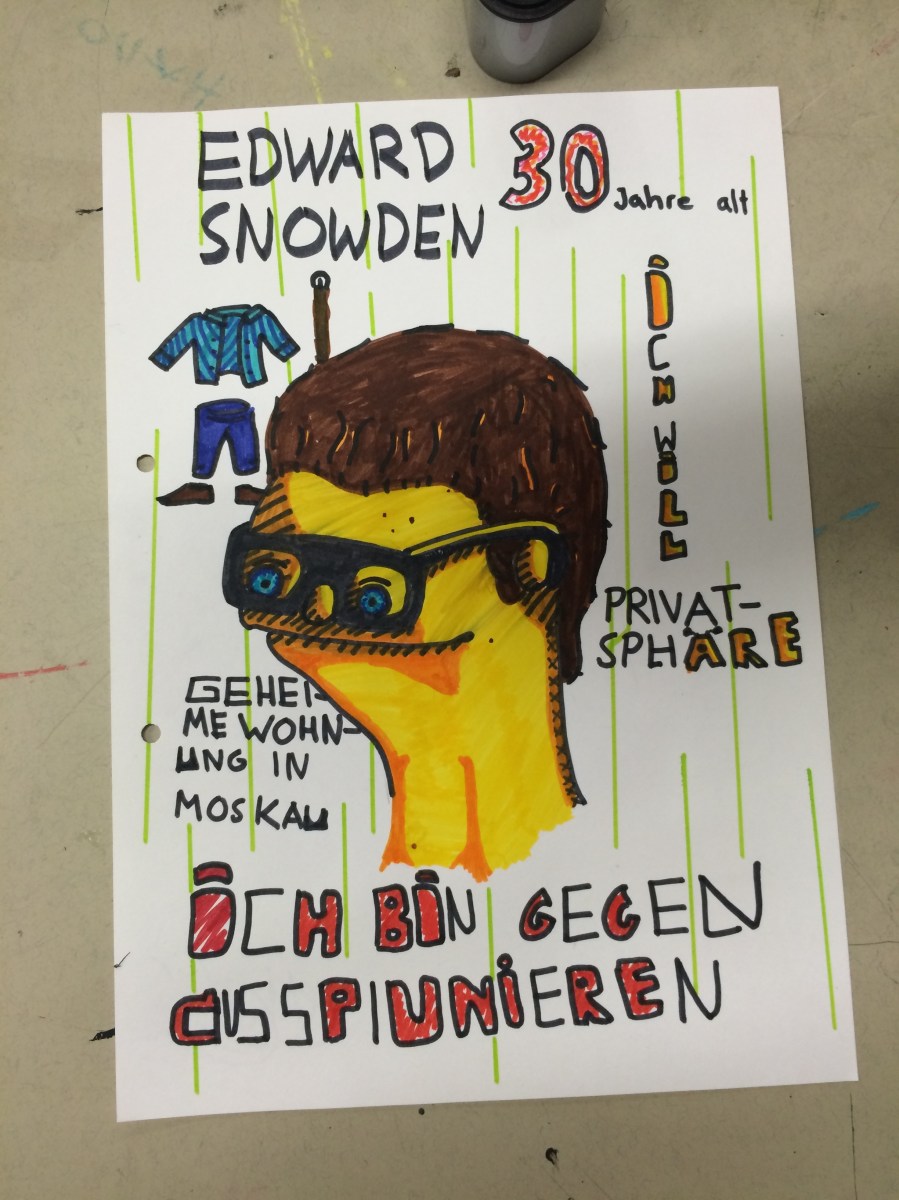 EDWARD
SNOWDEN
30 Jahre alt
ICH WILL
PRIVAT-
SPHÄRE
GEHEI-
ME WOHN-
UNG IN
MOSKAU
ICH BIN GEGEN
AUSSPIUNIEREN